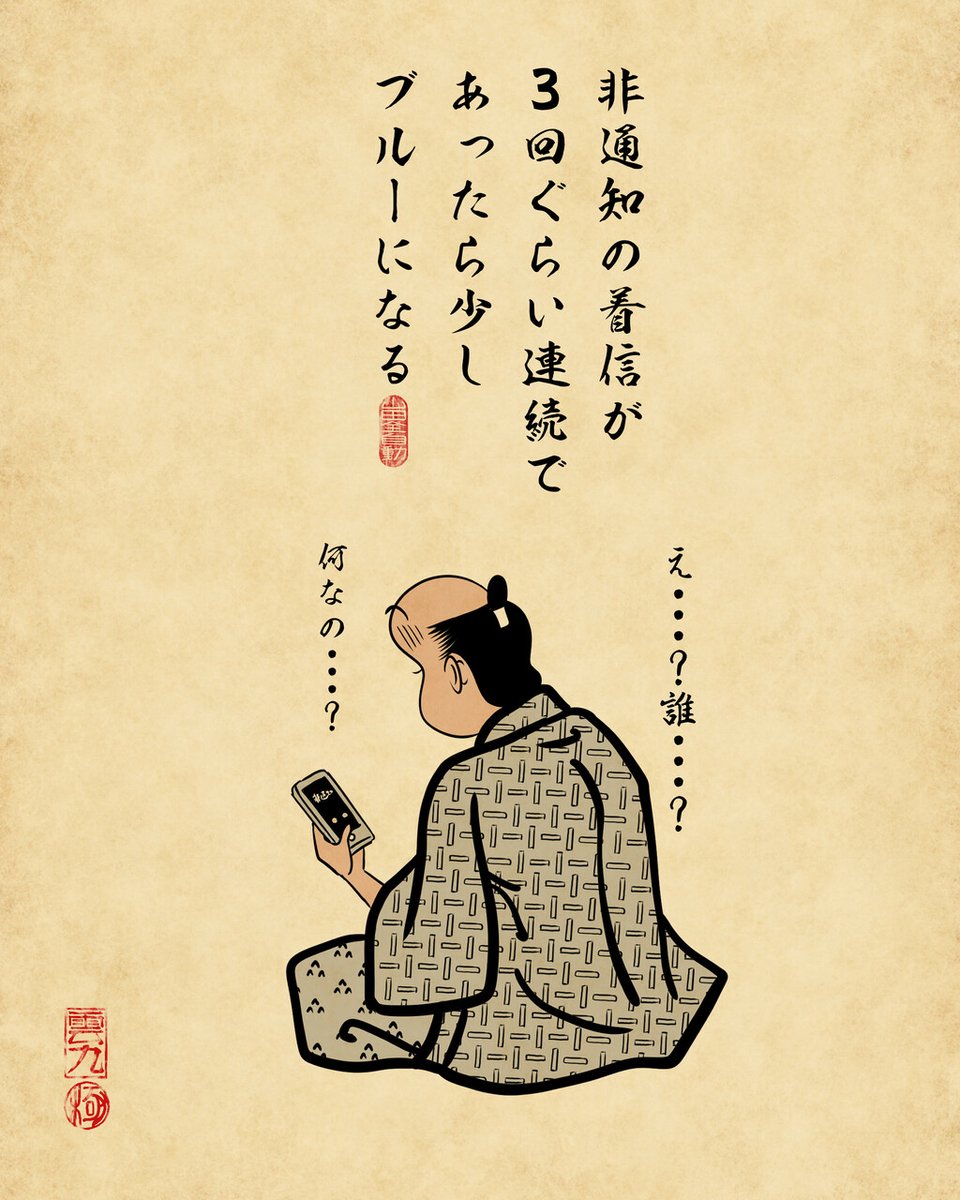 非通知の着信が
3回ぐらい連続で
あったら少し
ブルーになる
え・・・?誰・・・?
何なの・・・?